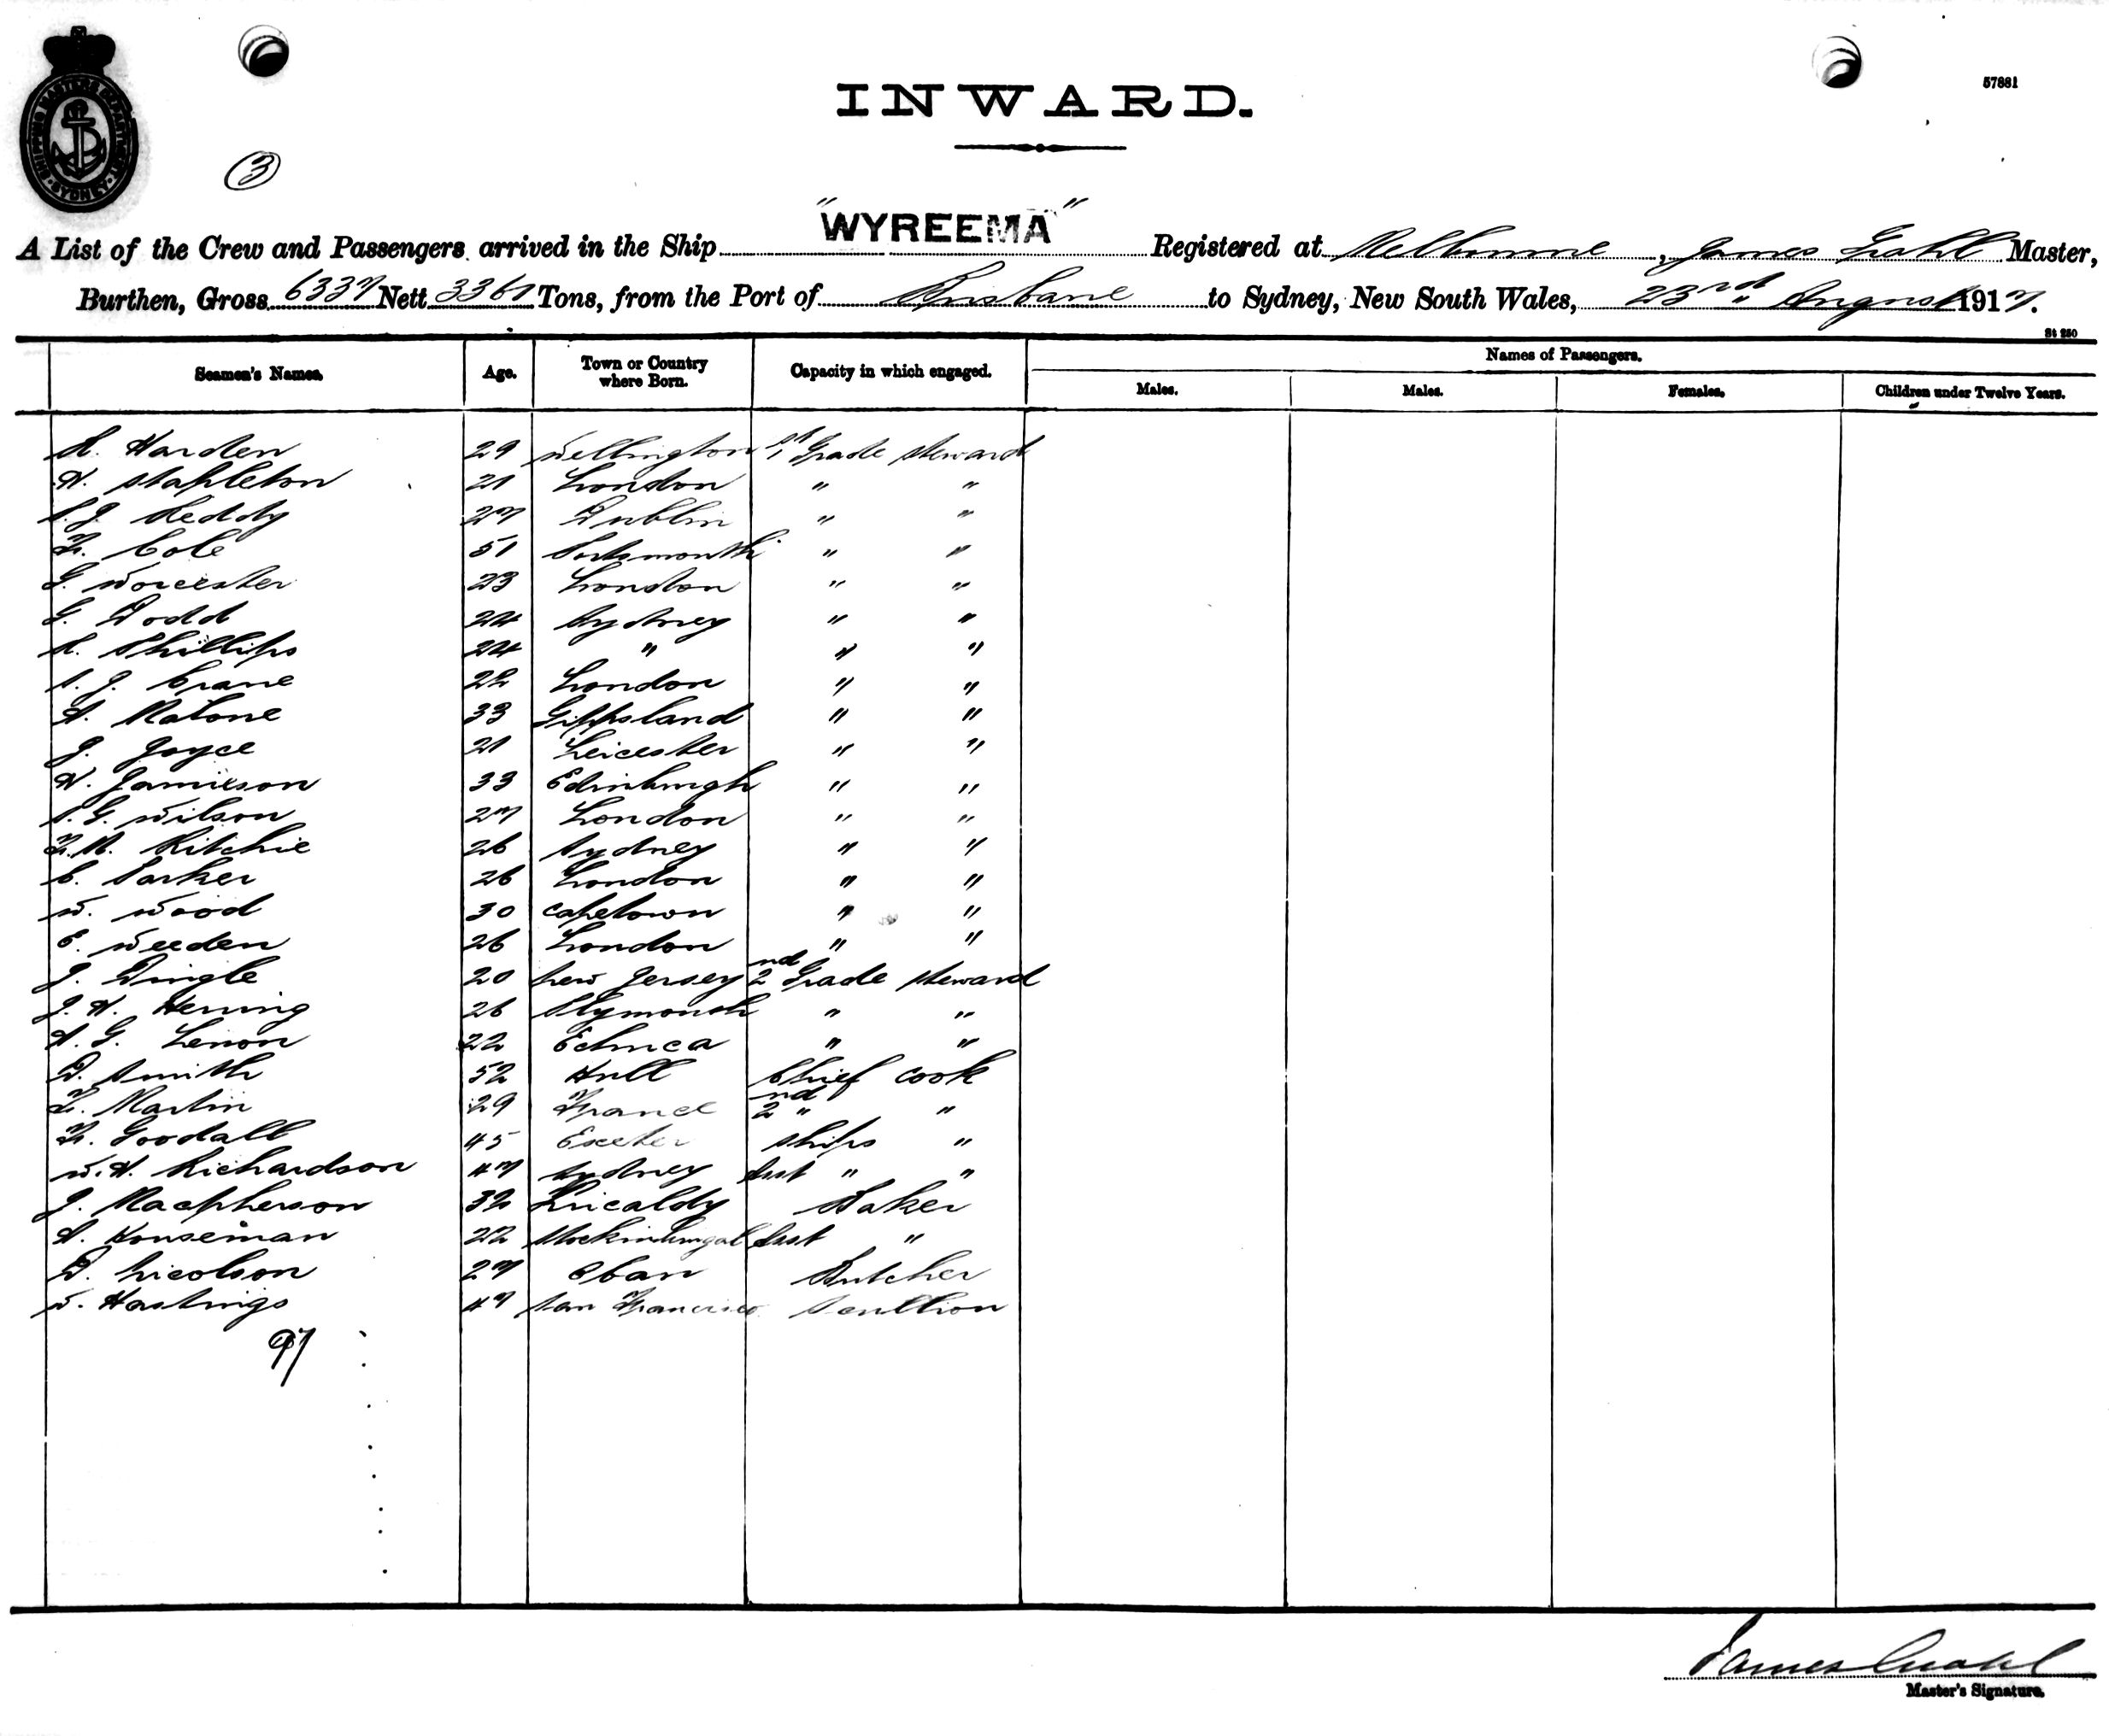 SHIPPING MASTERS DEPARTMENT SYDNEY
57881
INWARD.
3
A List of the Crew and Passengers arrived in the Ship "WYREEMA" Registered at Melbourne, James Grahl Master,
Burthen, Gross 6337 Nett 3361 Tons, from the Port of Brisbane to Sydney, New South Wales, 23rd August 1917.
St 250
Seamen's Names. Age. Town or Country where Born. Capacity in which engaged. Names of Passengers.
Males. Males. Females. Children under Twelve Years.
Harden 29 Wellington 1st Grade Steward
H. Stapleton 21 London " "
Reddy 27 Dublin " "
F. Cole 51 Portsmouth " "
G. Worcester 23 London " "
G. Dodd 24 Sydney " "
Phillips 24 " " "
J. Crane 22 London " "
Malone 33 Gippsland " "
J. Joyce 21 Leicester " "
Jamieson 33 Edinburgh " "
G. Wilson 27 London " "
Ritchie 26 Sydney " "
C. Parker 26 London " "
W. Wood 30 Capetown " "
E. Weeden 26 London " "
J. Dingle 20 New Jersey 2nd Grade Steward
J. H. Herring 26 Plymouth " "
A. G. Lenon 22 Echuca " "
D. Smith 52 Hull Chief Cook
Martin 29 France 2nd " "
F. Goodall 45 Exeter Ships "
W. H. Richardson 47 Sydney Asst " "
J. Macpherson 32 Kricaldy Baker
A. Houseman 22 Asst "
D. Nicolson 27 Oban Butcher
W. Hastings 47 San Francisco Scullion
27
James Grahl
Master's Signature.